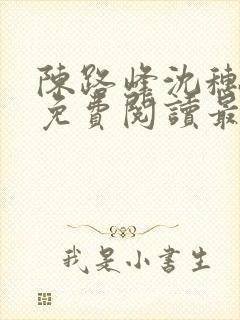 陳路峰沈穗
免費閱讀最
我是小書生